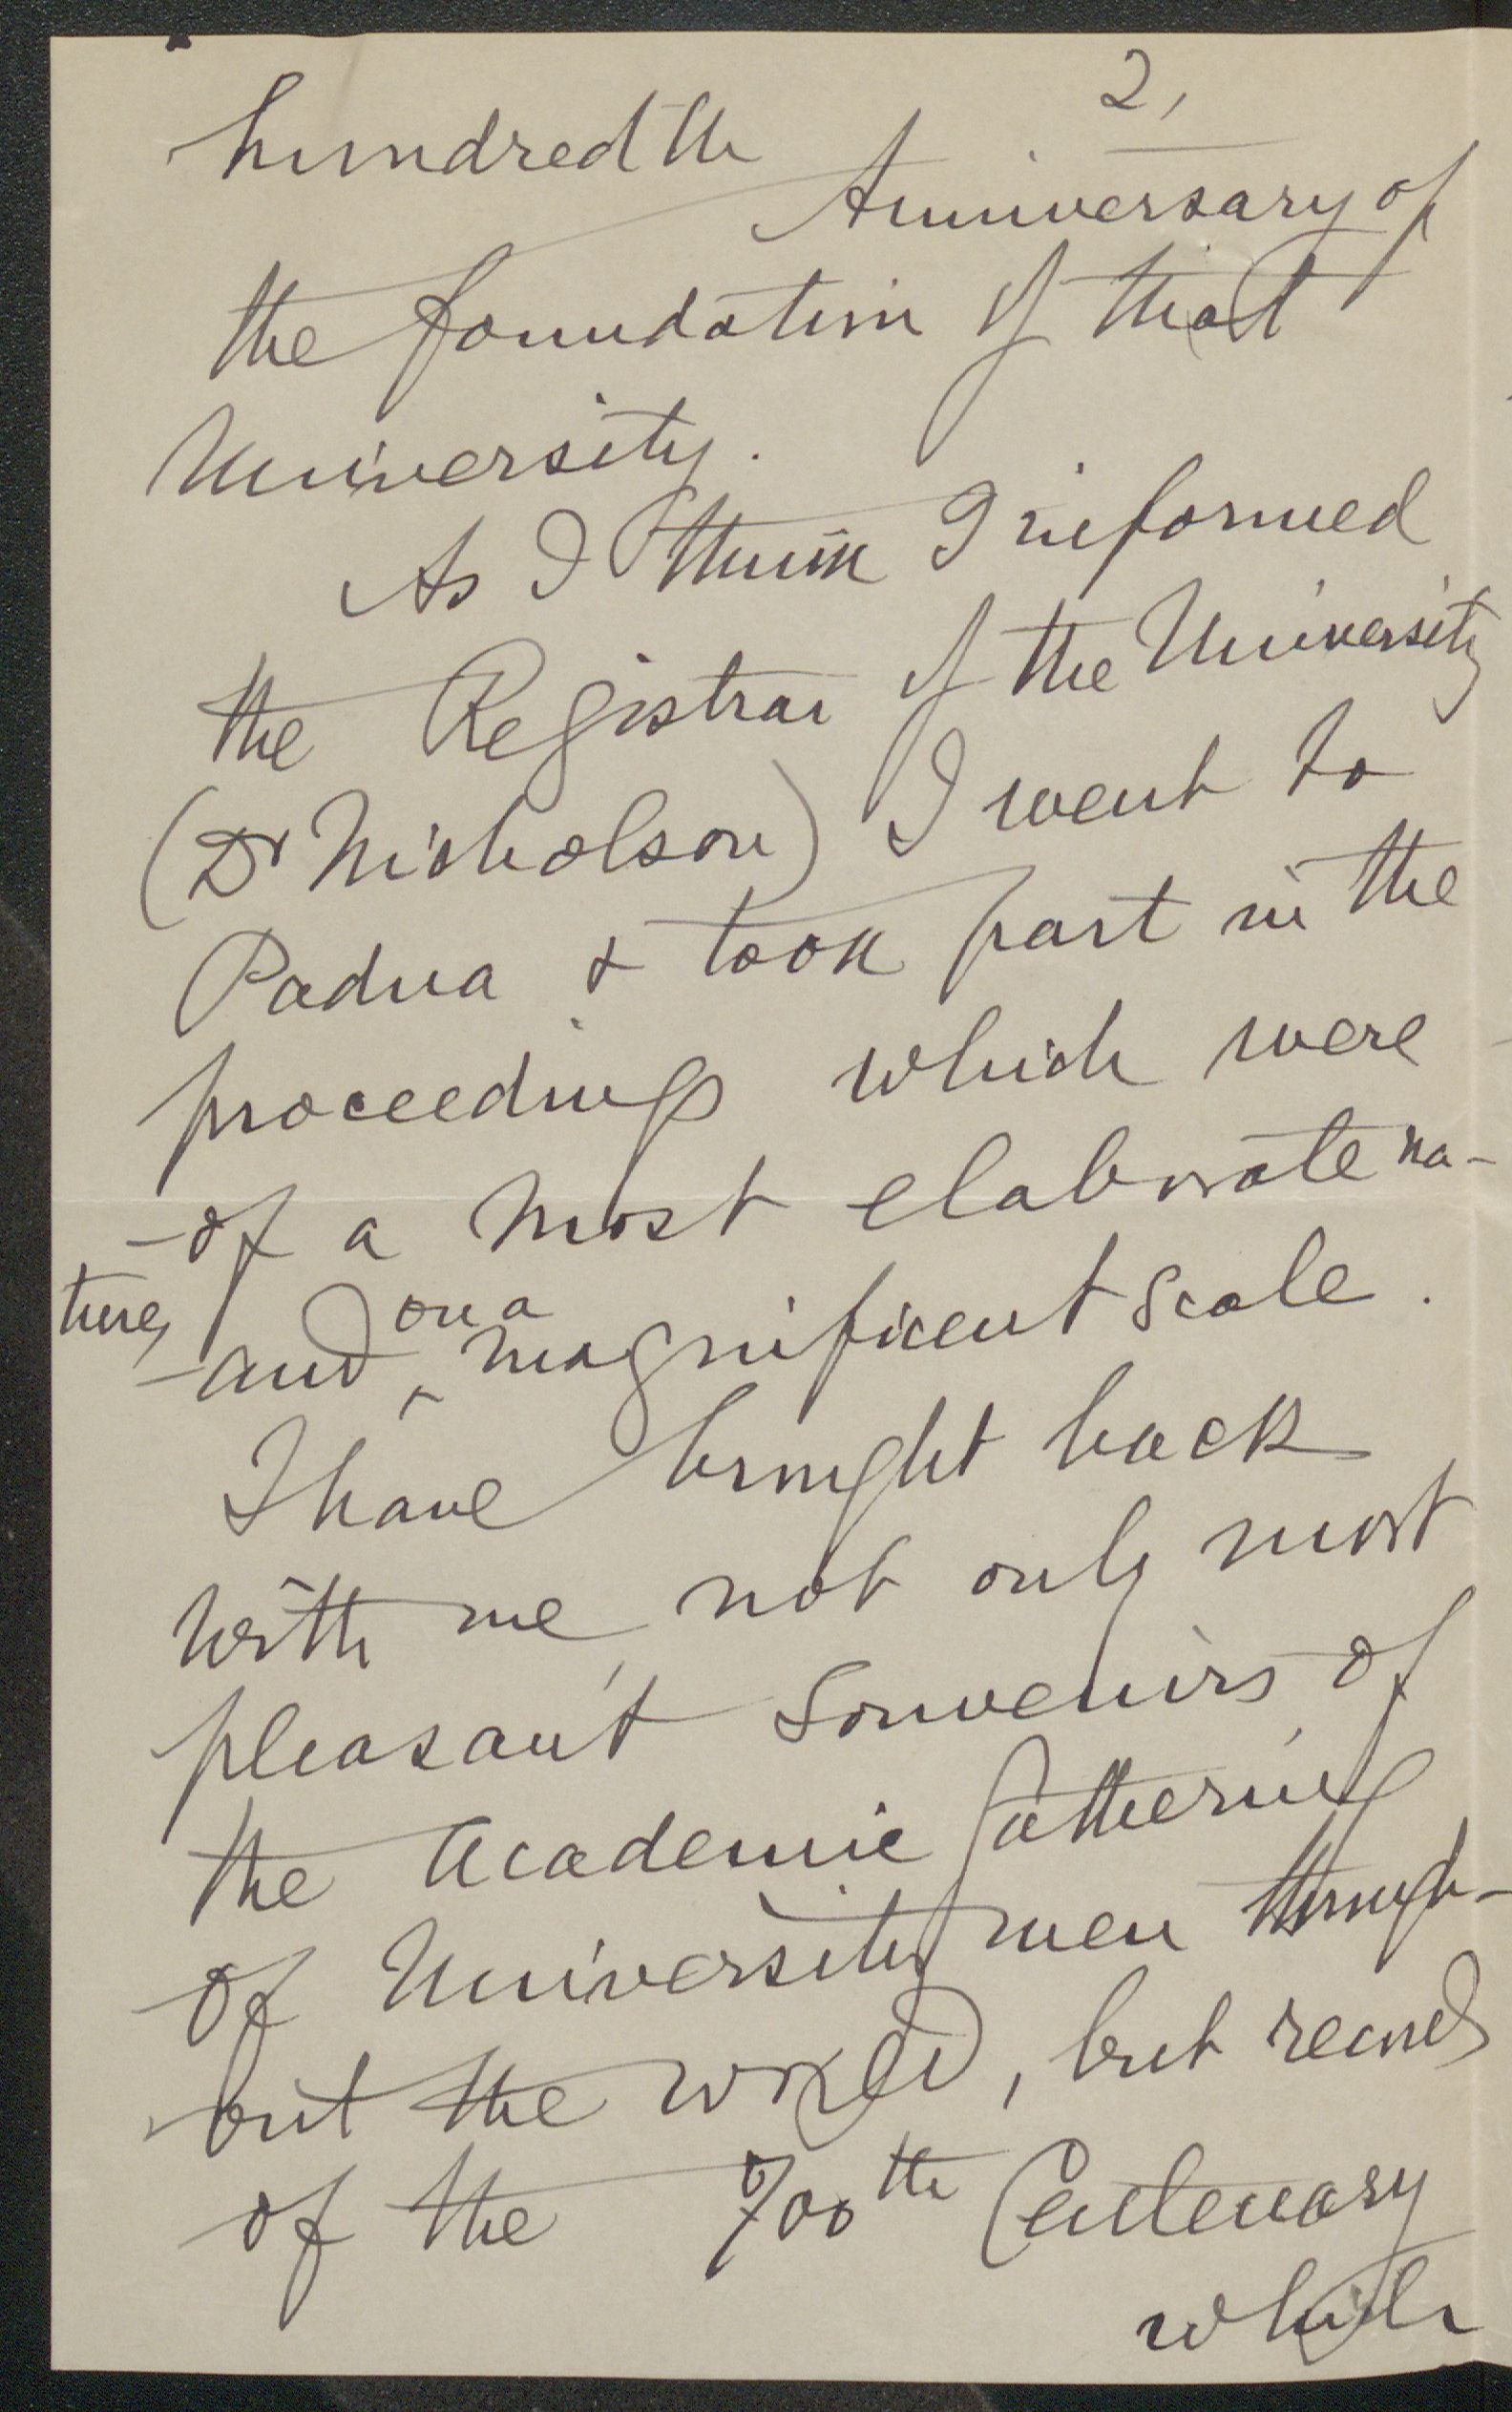 2,
hundredth Anniversary of
the foundation of that
University.
As I think I informed
the Registrar of the University
(Dr Nicholson) I went to
Padua & took part in the
proceedings which were
of a most elaborate na-
ture, and on a magnificent scale.
I have brought back
with me, not only most
pleasant souvenirs of
the Academic Gathering
of University men through-
out the world, but records
of the 700th Centenary
which